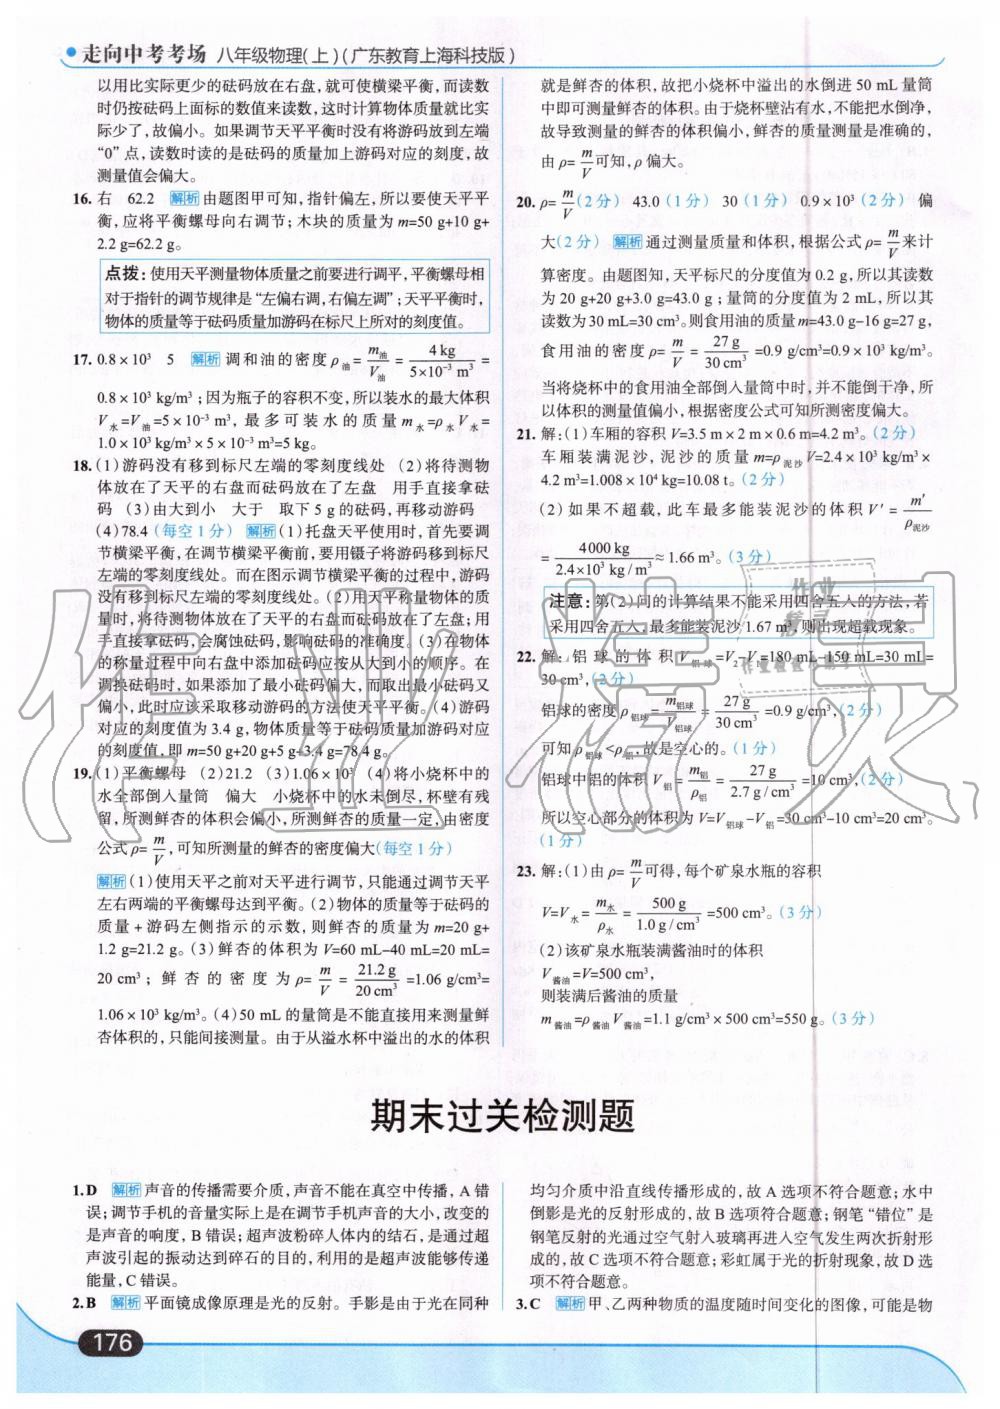 走向中考考场 八年级物理(上)(广东教育上海科技版)
以用比实际更少的砝码放在右盘,就可使横梁平衡,而读数
时仍按砝码上面标的数值来读数,这时计算物体质量就比实
际少了,故偏小。如果调节天平平衡时没有将游码放到左端
“0”点,读数时读的是砝码的质量加上游码对应的刻度,故
测量值会偏大。
16. 右 62.2 解析 由题图甲可知,指针偏左,所以要使天平平
衡,应将平衡螺母向右调节;木块的质量为 m=50 g+10 g+
2.2 g=62.2 g。
点拨:使用天平测量物体质量之前要进行调平,平衡螺母相
对于指针的调节规律是“左偏右调,右偏左调”;天平平衡时,
物体的质量等于砝码质量加游码在标尺上所对的刻度值。
17. 0.8×10³ 5 解析 调和油的密度 ρ油=m油/V油=4 kg/5×10⁻³ m³=
0.8×10³ kg/m³;因为瓶子的容积不变,所以装水的最大体积
V水=V油=5×10⁻³ m³,最多可装水的质量 m水=ρ水V水=
1.0×10³ kg/m³×5×10⁻³ m³=5 kg。
18. (1)游码没有移到标尺左端的零刻度线处 (2)将待测物
体放在了天平的右盘而砝码放在了左盘 用手直接拿砝
码 (3)由大到小 大于 取下 5 g 的砝码,再移动游码
(4)78.4(每空 1 分) 解析 (1)托盘天平使用时,首先要调
节横梁平衡,在调节横梁平衡前,要用镊子将游码移到标尺
左端的零刻度线处。而在图示调节横梁平衡的过程中,游码
没有移到标尺左端的零刻度线处。(2)用天平称量物体的质
量时,将待测物体放在了天平的右盘而砝码放在了左盘;用
手直接拿砝码,会腐蚀砝码,影响砝码的准确度。(3)在物体
的称量过程中向右盘中添加砝码应按从大到小的顺序。在
调换砝码时,如果添加了最小砝码偏大,而取出最小砝码又
偏小,此时应该采取移动游码的方法使天平平衡。(4)游码
对应的刻度值为 3.4 g,物体质量等于砝码质量加游码对应
的刻度值,即 m=50 g+20 g+5 g+3.4 g=78.4 g。
19. (1)平衡螺母 (2)21.2 (3)1.06×10³ (4)将小烧杯中的
水全部倒入量筒 偏大 小烧杯中的水未倒尽,杯壁有残
留,所测鲜杏的体积会偏小,所测鲜杏的质量一定,由密度
公式 ρ=m/V,可知所测量的鲜杏的密度偏大(每空 1 分)
解析 (1)使用天平之前对天平进行调节,只能通过调节天平
左右两端的平衡螺母达到平衡。(2)物体的质量等于砝码的
质量+游码左侧指示的示数,则鲜杏的质量为 m=20 g+
1.2 g=21.2 g。(3)鲜杏的体积为 V=60 mL-40 mL=20 mL=
20 cm³;鲜杏的密度为 ρ=m/V=21.2 g/20 cm³=1.06 g/cm³=
1.06×10³ kg/m³。(4)50 mL 的量筒是不能直接用来测量鲜
杏体积的,只能间接测量。由于从溢水杯中溢出的水的体积
就是鲜杏的体积,故把小烧杯中溢出的水倒进 50 mL 量筒
中即可测量鲜杏的体积。由于烧杯壁沾有水,不能把水倒净,
故导致测量的鲜杏的体积偏小,鲜杏的质量测量是准确的,
由 ρ=m/V可知,ρ 偏大。
20. ρ=m/V(2 分) 43.0(1 分) 30(1 分) 0.9×10³(2 分) 偏
大(2 分) 解析 通过测量质量和体积,根据公式 ρ=m/V来计
算密度。由题图知,天平标尺的分度值为 0.2 g,所以其读数
为 20 g+20 g+3.0 g=43.0 g;量筒的分度值为 2 mL,所以其
读数为 30 mL=30 cm³。则食用油的质量 m=43.0 g-16 g=27 g,
食用油的密度 ρ=m/V=27 g/30 cm³=0.9 g/cm³=0.9×10³ kg/m³。
当将烧杯中的食用油全部倒入量筒中时,并不能倒干净,所
以体积的测量值偏小,根据密度公式可知所测密度偏大。
21. 解:(1)车厢的容积 V=3.5 m×2 m×0.6 m=4.2 m³。(2 分)
车厢装满泥沙,泥沙的质量 m=ρ泥沙V=2.4×10³ kg/m³×
4.2 m³=1.008×10⁴ kg=10.08 t。(2 分)
(2)如果不超载,此车最多能装泥沙的体积 V′=m′/ρ泥沙
=4 000 kg/2.4×10³ kg/m³≈1.66 m³。(3 分)
注意:第(2)问的计算结果不能采用四舍五入的方法,若
采用四舍五入,最多能装泥沙 1.67 m³,则出现超载现象。
22. 解:铝球的体积 V铝球=V₂-V₁=180 mL-150 mL=30 mL=
30 cm³,(2 分)
铝球的密度 ρ铝球=m铝球/V铝球=27 g/30 cm³=0.9 g/cm³,(2 分)
可知 ρ铝球<ρ铝,故是空心的。(1 分)
铝球中铝的体积 V铝=m铝/ρ铝=27 g/2.7 g/cm³=10 cm³,(2 分)
所以空心部分的体积为 V=V铝球-V铝=30 cm³-10 cm³=20 cm³。
(1 分)
23. 解:(1)由 ρ=m/V可得,每个矿泉水瓶的容积
V=V水=m水/ρ水=500 g/1.0 g/cm³=500 cm³。(3 分)
(2)该矿泉水瓶装满酱油时的体积
V酱油=V=500 cm³,
则装满后酱油的质量
m酱油=ρ酱油V酱油=1.1 g/cm³×500 cm³=550 g。(3 分)
期末过关检测题
1. D 解析 声音的传播需要介质,声音不能在真空中传播,A 错
误;调节手机的音量实际上是在调节手机声音的大小,改变的
是声音的响度,B 错误;超声波粉碎人体内的结石,是通过超
声波引起的振动达到碎石的目的,利用的是超声波能够传递
能量,C 错误。
2. B 解析 平面镜成像原理是光的反射。手影是由于光在同种
均匀介质中沿直线传播形成的,故 A 选项不符合题意;水中
倒影是光的反射形成的,故 B 选项符合题意;钢笔“错位”是
钢笔反射的光通过空气射入玻璃再进入空气发生两次折射形
成的,故 C 选项不符合题意;彩虹属于光的折射现象,故 D 选
项不符合题意。
3. C 解析 甲、乙两种物质的温度随时间变化的图像,可能是物
176
作业精灵